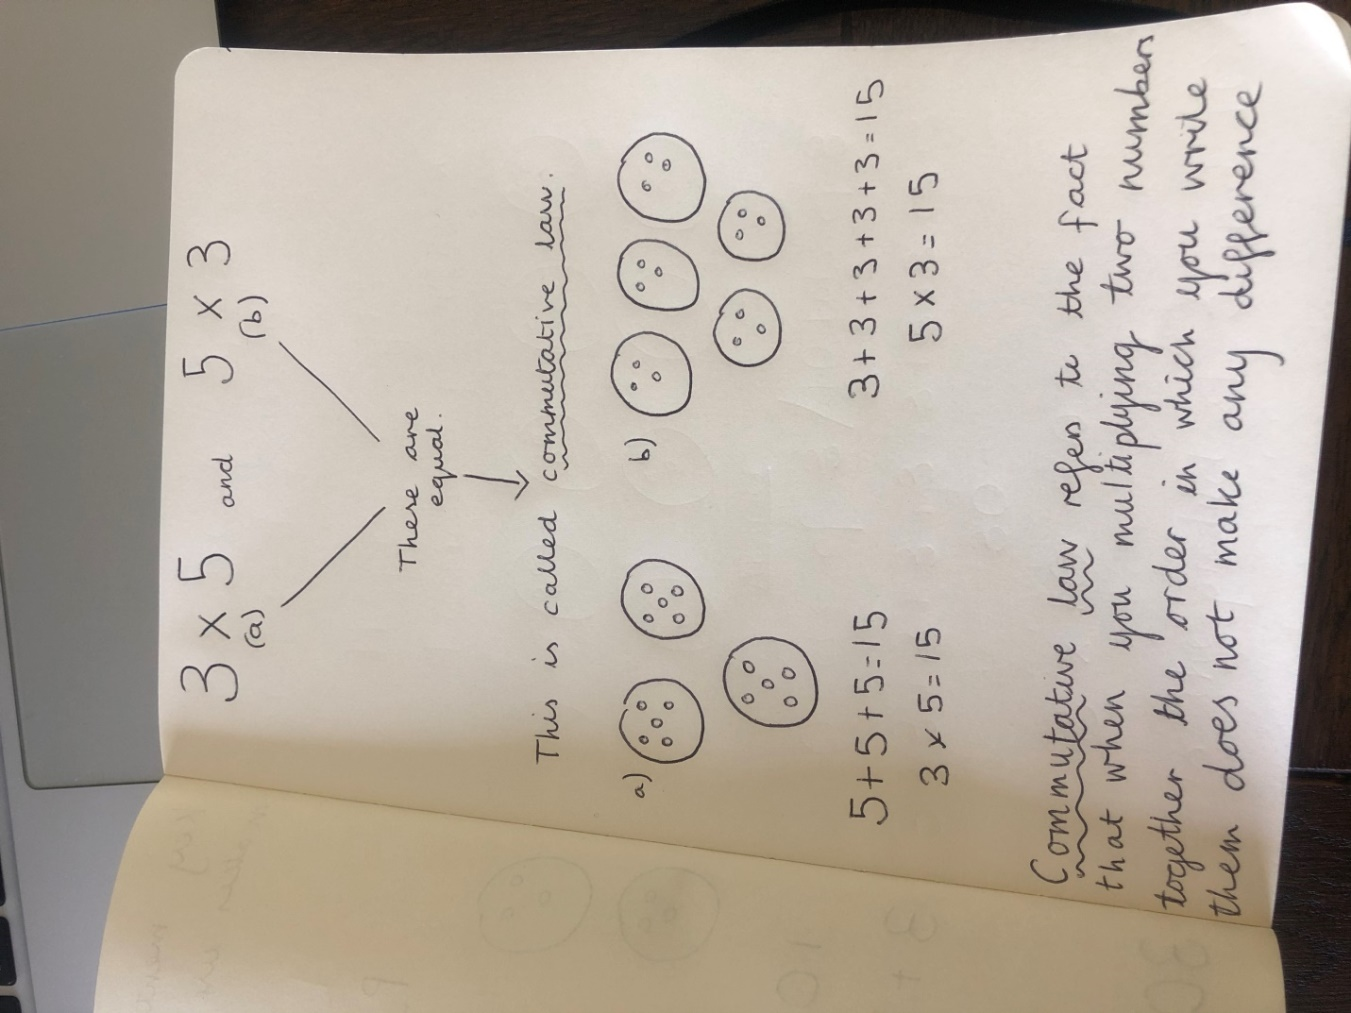 3 x 5 and 5 x 3
(a) (b)
There are
equal.
This is called commutative law.
a) b)
5+5+5=15 3+3+3+3+3=15
3 x 5=15 5 x 3=15
Commutative law refers to the fact
that when you multiplying two numbers
together the order in which you write
them does not make any difference